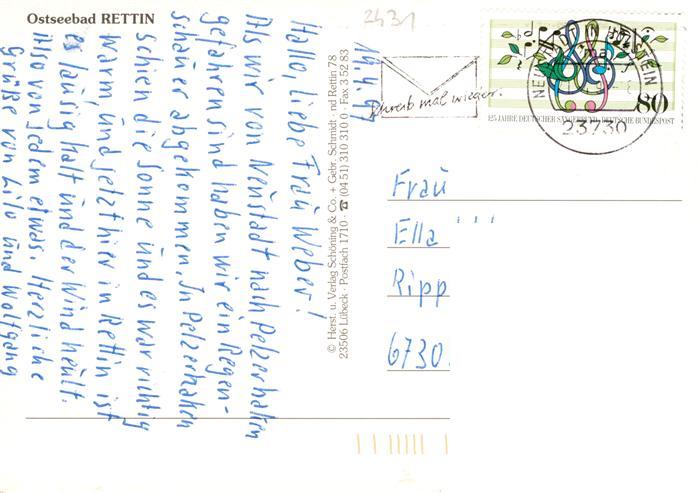 Ostseebad RETTIN
2431
19.4.97
Hallo, liebe Frau Weber!
Als wir von Neustadt nach Pelzerhaken
gefahren sind haben wir ein Regen-
schauer abgekommen. In Pelzerhaken
schien die Sonne und es war richtig
warm, und jetzt hier in Rettin ist
es lausig kalt und der Wind heult.
Also von jedem etwas. Herzliche
Grüße von Lilo und Wolfgang
© Herst. u. Verlag Schöning & Co. + Gebr. Schmidt · nd Rettin 78
23506 Lübeck · Postfach 1710 · ☎ (04 51) 310 310 0 · Fax 3 52 83
Schreib mal wieder.
23730
80
125 JAHRE DEUTSCHER SÄNGERBUND DEUTSCHE BUNDESPOST
Frau
Ella
Ripp
6730